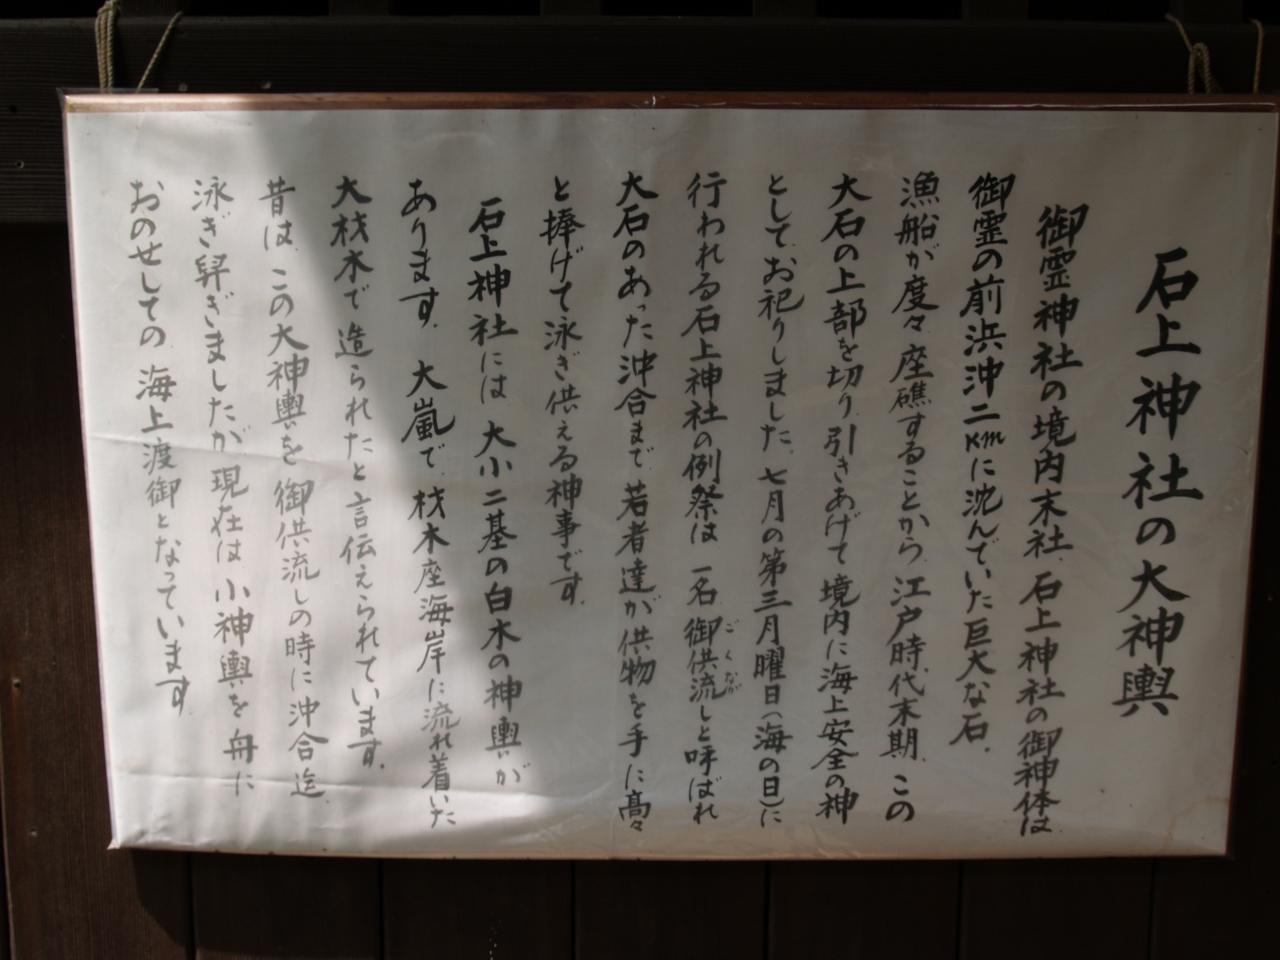 石上神社の大神輿
御霊神社の境内末社、石上神社の御神体は、
御霊の前浜沖二Kmに沈んでいた巨大な石。
漁船が度々座礁することから、江戸時代末期、この
大石の上部を切り引きあげて境内に海上安全の神
として、お祀りしました。七月の第三月曜日(海の日)に
行われる石上神社の例祭は、一名、御供流しと呼ばれ
ごくなが
大石のあった沖合まで、若者達が供物を手に高々
と捧げて泳ぎ供える神事です。
石上神社には、大小二基の白木の神輿が
あります。大嵐で、材木座海岸に流れ着いた
大材木で造られたと言伝えられています。
昔は、この大神輿を御供流しの時に沖合迄
泳ぎ舁ぎましたが、現在は、小神輿を舟に
おのせしての海上渡御となっています。